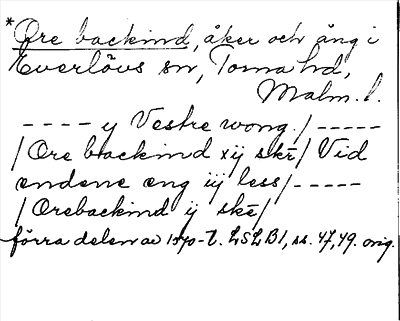 *Øre backind, åker och äng i
Everlövs sn, Torna hd,
Malm. l.
---- y Vestre wong. / -----
/ Ore backind xij skē / Vid
endene eng iij less / -----
/ Orebackind ij skē /
förra delen av 1570-t. LSLB1, ss. 47, 49. orig.